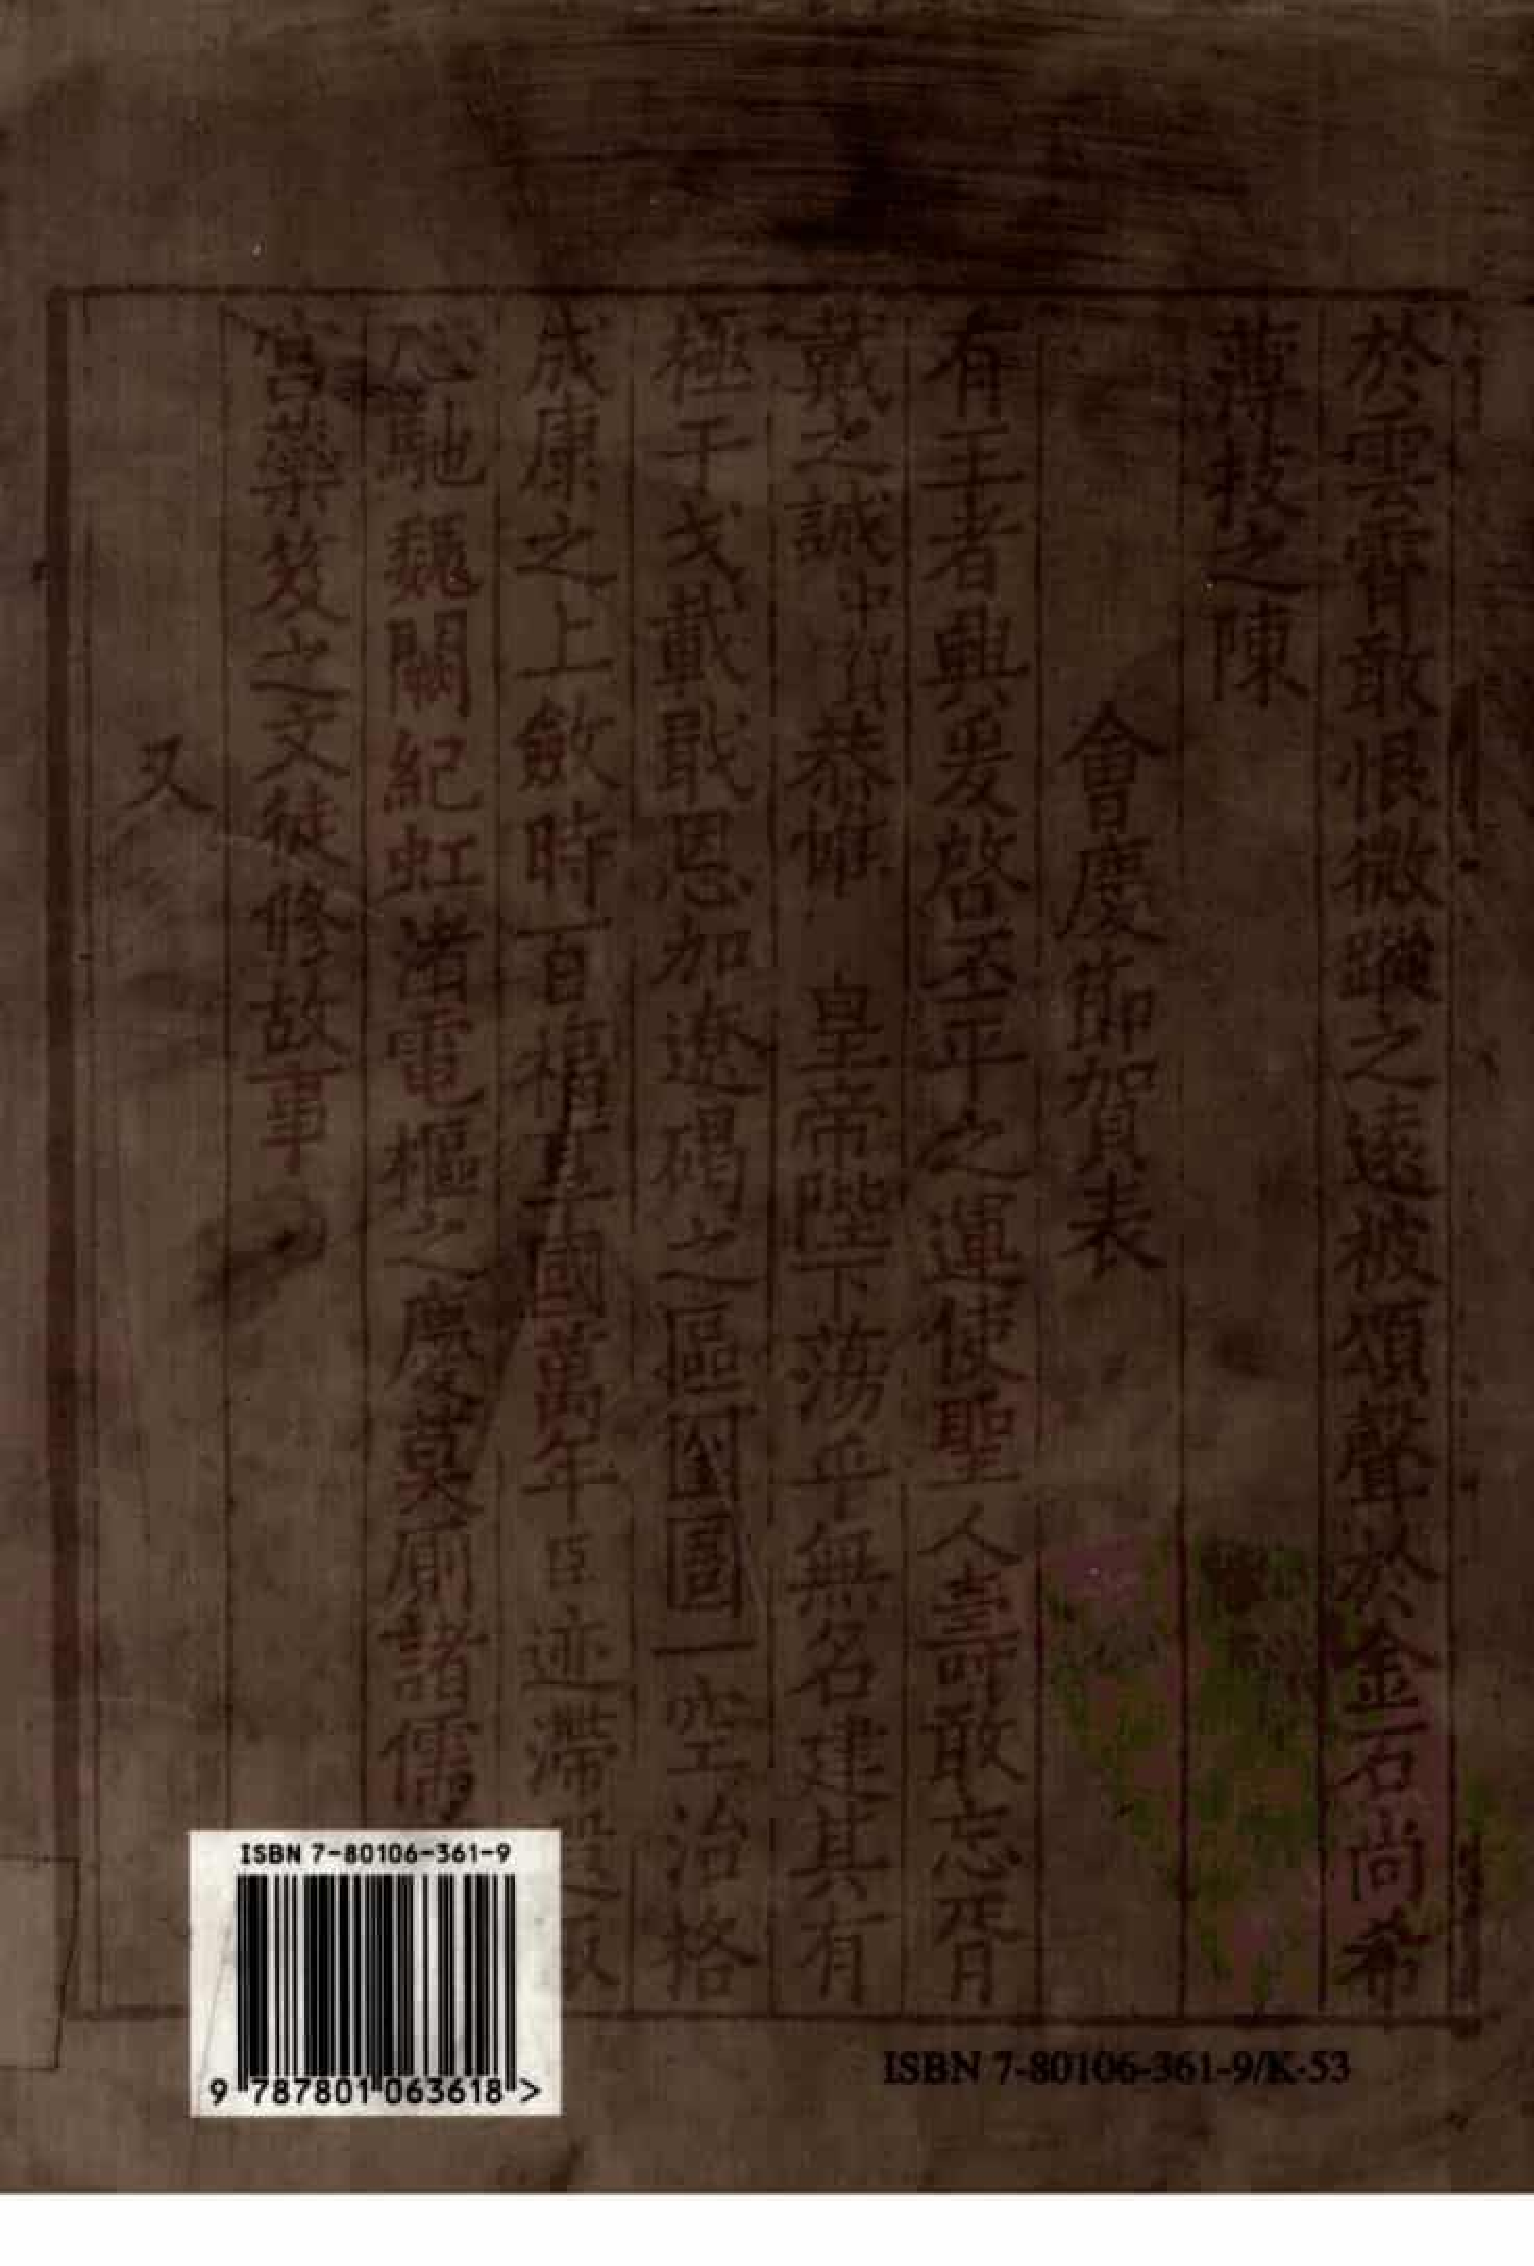 於雲霄敢恨微蹤之遠被頌聲於金石尚希
薄技之陳
會慶節賀表
有王者興爰啓丕平之運使聖人壽敢忘胥
戴之誠中賀恭惟 皇帝陛下蕩乎無名建其有
極干戈載戢恩加遼碣之區囹圄一空治格
成康之上斂時百福 國萬年臣迹滯
心馳魏闕紀虹渚電樞之慶莫厠諸儒
宮藥笈之文徒修故事
又
ISBN 7-80106-361-9
9 787801 063618 >
ISBN 7-80106-361-9/K·53